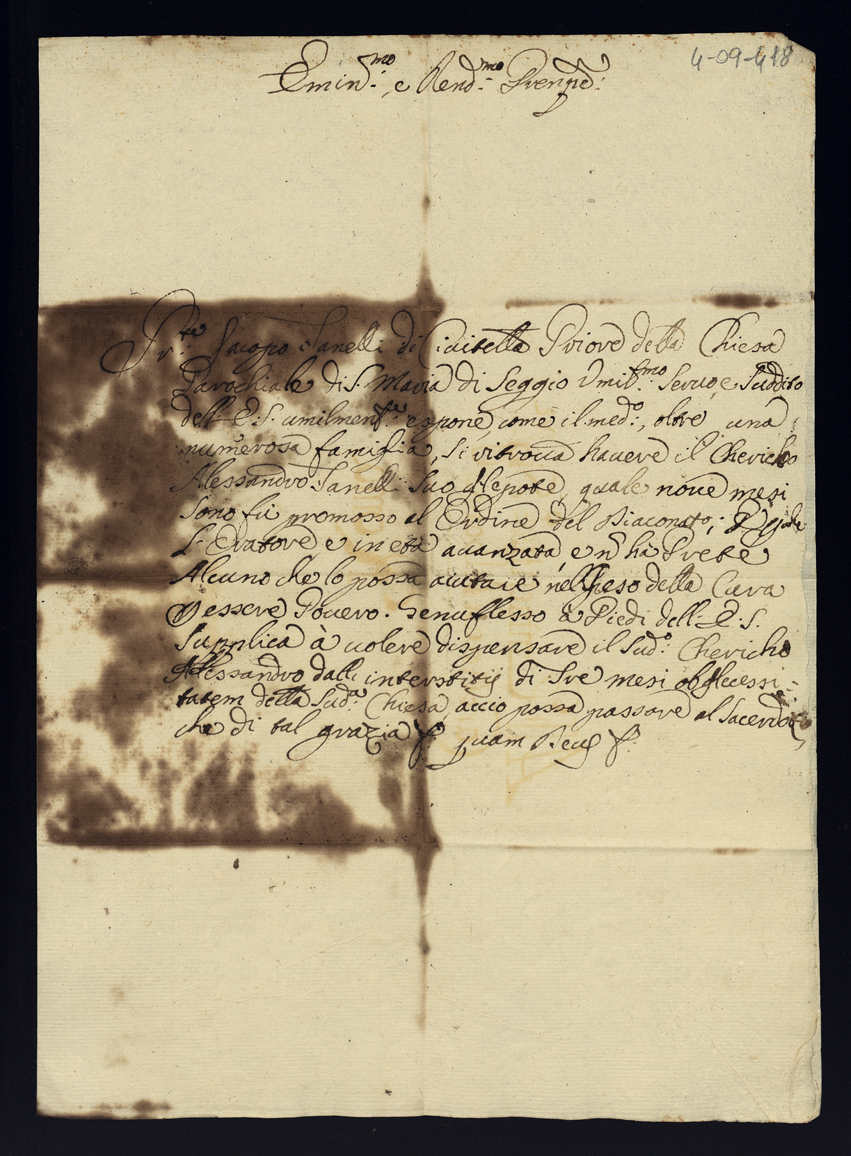 4-09-418
Emin.mo e Rend.mo Prenpe:
Pr.te Jacopo Zanelli di Civitella Priore della Chiesa
Parochiale di S. Maria di Seggio Vmil.mo Servo, e Suddito
dell E. S. umilmen.te espone, come il med.o, oltre una
numerosa famiglia, si ritrova havere il Chericho
Alessandro Zanelli suo Nepote, quale nove mesi
sono fù promosso al Ordine del Diaconato;
L'Oratore e in età avanzata, e n̄ ha Prete
Alcuno che lo possa aiutare nel Peso della Cura
essere Povero. Genuflesso a Piedi dell E. S.
supplica à volere dispensare il sud.o Chericho
Alessandro dalli interstitij di Tre mesi ob Necessi
tatem della Sud.a Chiesa, accio possa passare al Sacerdo
che di tal grazia quam Deus